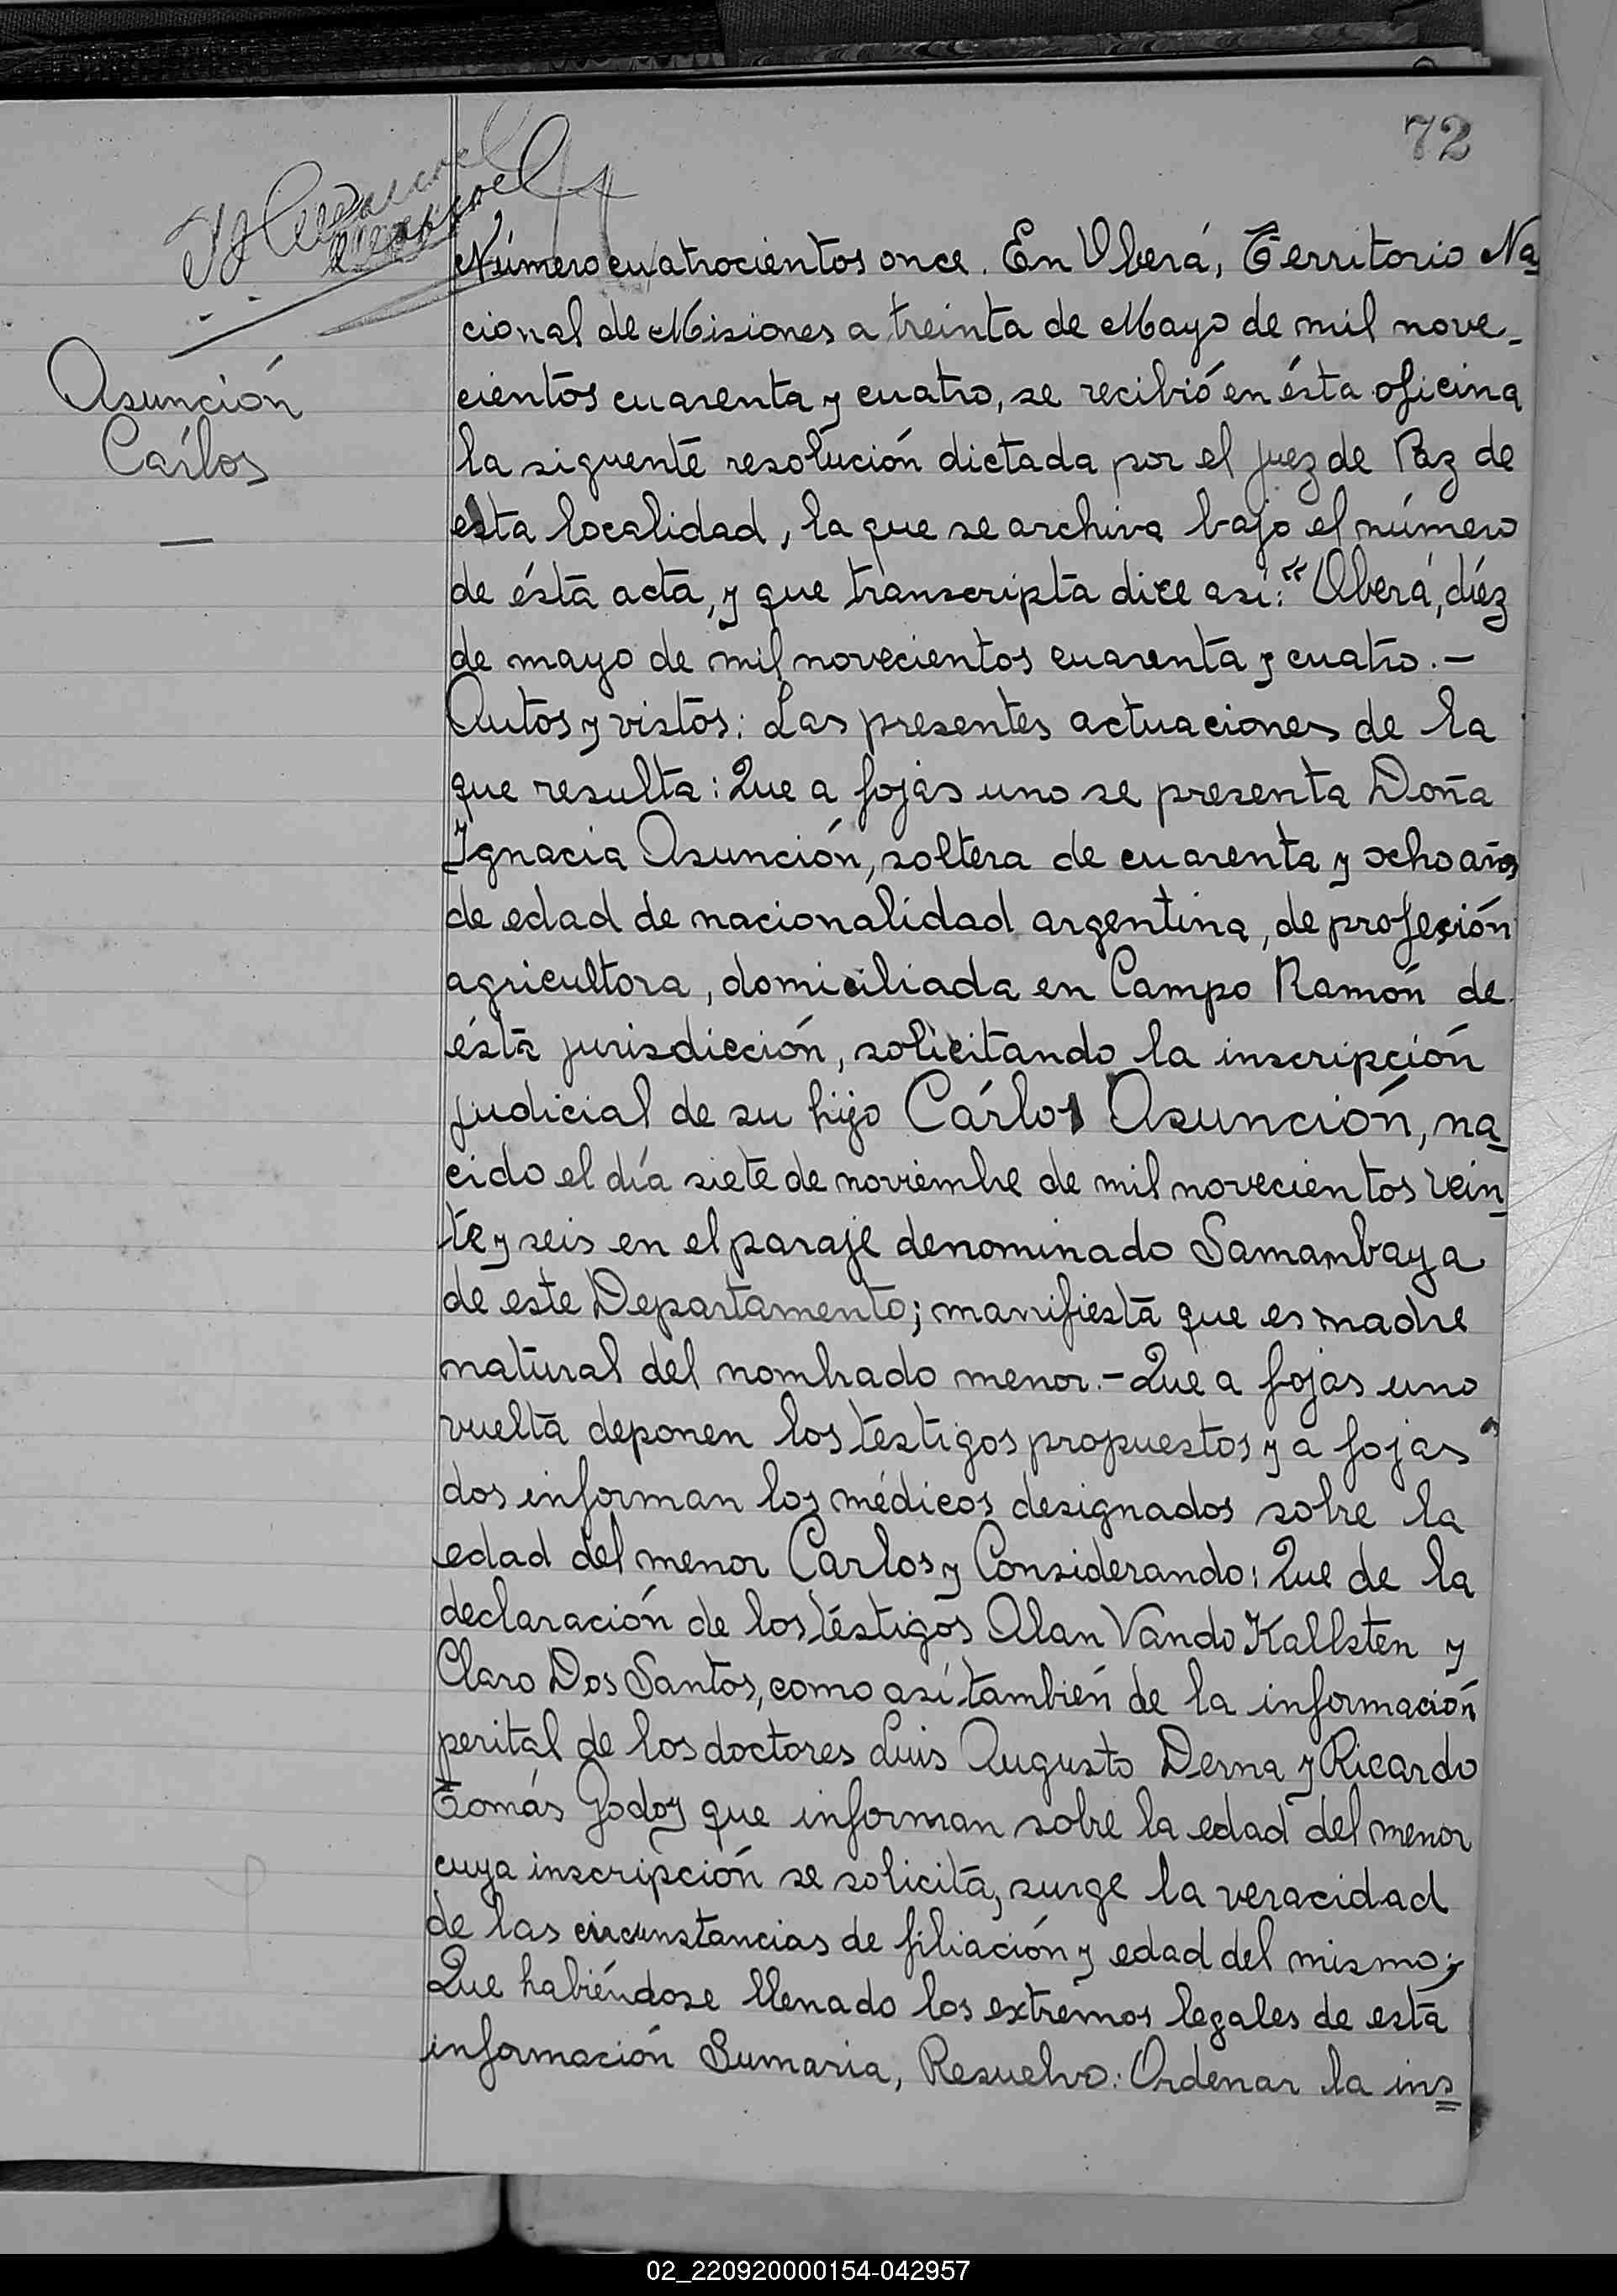 72
Asunción
Cárlos
Número cuatrocientos once. En Oberá, Territorio Na
cional de Misiones a treinta de Mayo de mil nove-
cientos cuarenta y cuatro, se recibió en ésta oficina
la siguente resolución dictada por el juez de Paz de
esta localidad, la que se archiva bajo el número
de ésta acta, y que transcripta dice así: "Oberá, diéz
de mayo de mil novecientos cuarenta y cuatro.-
Autos y vistos: Las presentes actuaciones de la
que resulta: Que a fojas uno se presenta Doña
Ignacia Asunción, soltera de cuarenta y ocho años
de edad de nacionalidad argentina, de profesión
agricultora, domiciliada en Campo Ramón de
ésta jurisdicción, solicitando la inscripción
judicial de su hijo Cárlos Asunción, na
cido el día siete de noviembre de mil novecientos vein
te y seis en el paraje denominado Samambaya
de este Departamento; manifiesta que es madre
natural del nombrado menor.- Que a fojas uno
vuelta deponen los testigos propuestos y a fojas
dos informan los médicos designados sobre la
edad del menor Carlos y Considerando: Que de la
declaración de los testigos Alan Vando Kallsten y
Claro Dos Santos, como así también de la información
perital de los doctores Luis Augusto Derna y Ricardo
Tomás Godoy que informan sobre la edad del menor
cuya inscripción se solicita, surge la veracidad
de las circunstancias de filiación y edad del mismo;
Que habiéndose llenado los extremos legales de esta
información Sumaria, Resuelvo: Ordenar la ins
02_220920000154-042957